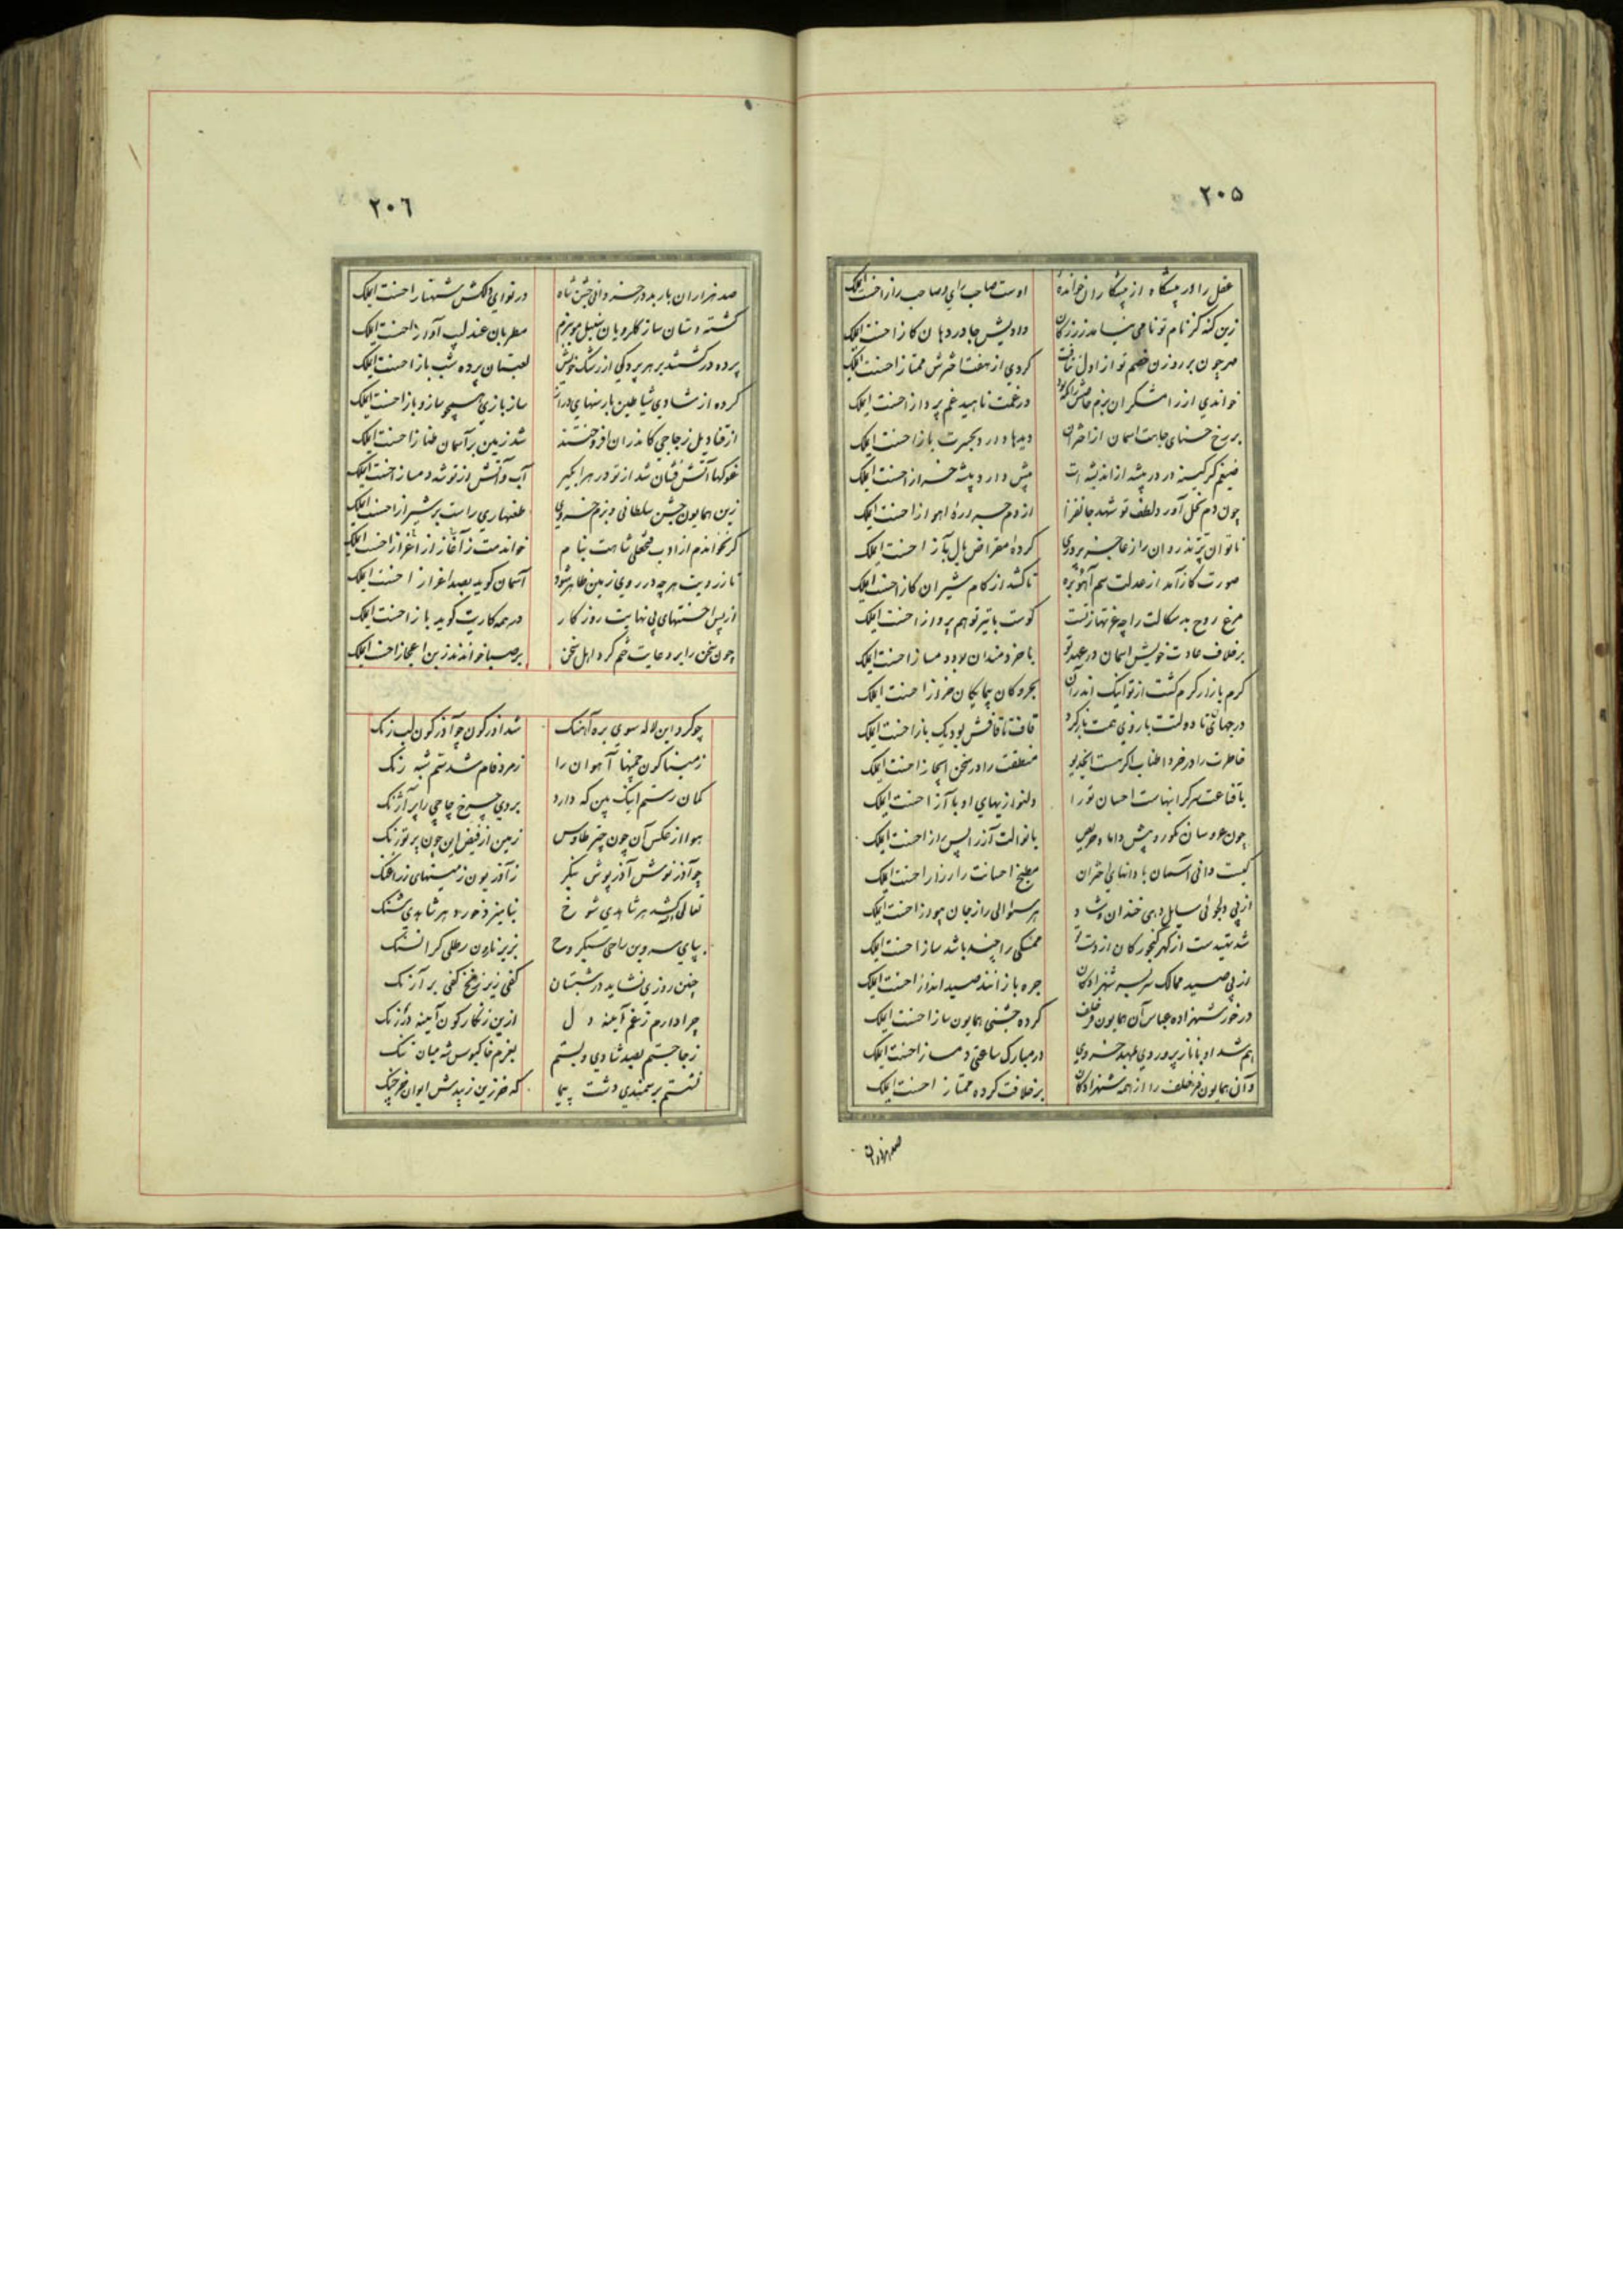 ۲۰۵
عقل را در پیشگاه از پیشکاران خوانده اوست صاحب رای و صاحب راز احسنت ایملک
زین کنه کز نام تو نامی دادیش جا در دهان کاز احسنت ایملک
مهر چون بر روزن خصم تو از اول نتافت کردی از هفت اخترش ممتاز احسنت ایملک
خواندی از رامشکران بزم در غمت ناهید غم پرداز احسنت ایملک
بر رخ حسنای جاهت اسمان از اختران دیدها دارد بحیرت باز احسنت ایملک
ضیغم کر کینه ور در بیشه از اندیشه ات پیش دارد پیشه احسنت ایملک
چون دم نحل آور دلطف تو شهد جانفزا از دم اهواز احسنت ایملک
ناتوان پرنده روان را از عاجز پروری کرده مقراض بال آز احسنت ایملک
صورت کاز آمد از عدلت سم آهو بره تا کشد از کام شیران کاز احسنت ایملک
مرغ روح بدسکالت را چه غربتهاز تست کوست با تیر تو هم پرواز احسنت ایملک
بر خلاف عادت خویش اسمان در عهد تو با خردمندان بود دمساز احسنت ایملک
کرم بازار کرم کشت از تو اینک اندران بحر و کان احسنت ایملک
در جهان تا دولتت بازوی همت باز کرد قاف تا قافش بود یک باز احسنت ایملک
خاطرت را در خرد اطناب اکرمست ایخدیو منطقت را در سخن ایجاز احسنت ایملک
با قناعت احسان تو را دلنوازیهای او با آز احسنت ایملک
چون عروسان نکورو پیش داماد حریص با نوالت آز را پس راز احسنت ایملک
کیست دانی آسمان با دانهای اختران مطبخ احسانت را رزاز احسنت ایملک
از پی دلجوئی سایل دهی خندان و شاد هر سؤالی را ز جان احسنت ایملک
شد تهیدست از کهر کنجور کان از دست تو ممسکی را چند باشد ساز احسنت ایملک
از پی صید ممالک سر بسر شهزادکان جره بازانند صید انداز احسنت ایملک
در خور شهزاده عباس آن همایون فر خلف کرده جشنی همایون ساز احسنت ایملک
هم شد او با ناز پرورد ی خسروی در مبارک ساعتی دمساز احسنت ایملک
و آن همایون فر خلف را از همه شهزادکان بر خلافت کرده ممتاز احسنت ایملک
صد هزاران
۲۰۶
صد هزاران باربد در خسروانی جشن شاه در نوای دلکش شهناز احسنت ایملک
کشته دستان ساز کلرویان سنبل مو ببزم مطربان عندلیب آواز احسنت ایملک
پرده در کشتند بر هر پردکی از رشک خویش لعبتان پرده شب باز احسنت ایملک
کرده از شادی شیاطین با رسنهای دراز ساز بازی همچو سازو باز احسنت ایملک
از قنادیل زجاجی کاندران افروختند شد زمین بر آسمان طناز احسنت ایملک
غوکها آتش فشان شد از تو در هر ابکیر آب و آتش از تو شد دمساز احسنت ایملک
زین همایون جشن سلطانی و بزم خسروی طعنها ری راست بر شیراز احسنت ایملک
کر نخواندم از ادب فتحعلی شاهت بنام خواندمت ز آغاز از اغراز احسنت ایملک
تا ز رویت هر چه در روی زمین ظاهر شود آسمان کوید بصد اعزاز احسنت ایملک
از پس احسنتهای بی نهایت روزکار در همه کاریت کوید باز احسنت ایملک
چون سخن را بر دعایت ختم کرد اهل سخن بر صبا خواندند زین اعجاز احسنت ایملک
چو کرد این لاله سوی بره آهنک شد آذرکون چو آذرکون لب رنک
ز میناکون چمنها آهوان را زمرد فام شد سم شبه رنک
کمان رستم اینک بین که دارد بروی چرخ چاچی را پر آژنک
هوا از عکس آن چون چتر طاوس زمین از فیض این چون پر تورنک
چو آذر نوش آذر پوش بنکر ز آذریون زمینهای زراغنک
تعالی الله کشد هر شاهدی شوخ بنامیزد خورد هر شاهدی شنک
بپای سروبن راحی سبکروح بزیر نارون رطلی کرانسنک
چنین روزی نشاید در شبستان کفی زیر زنخ کفی بر آرنک
چرا دارم ز غم آیینه دل ازین زنکارکون آیینه در زنک
ز جا جستم بصد شادی و بستم بعزم خاکبوس شه میان تنک
نشستم بر سمندی دشت پیما که خرزین زیبدش ایوان خرچنک